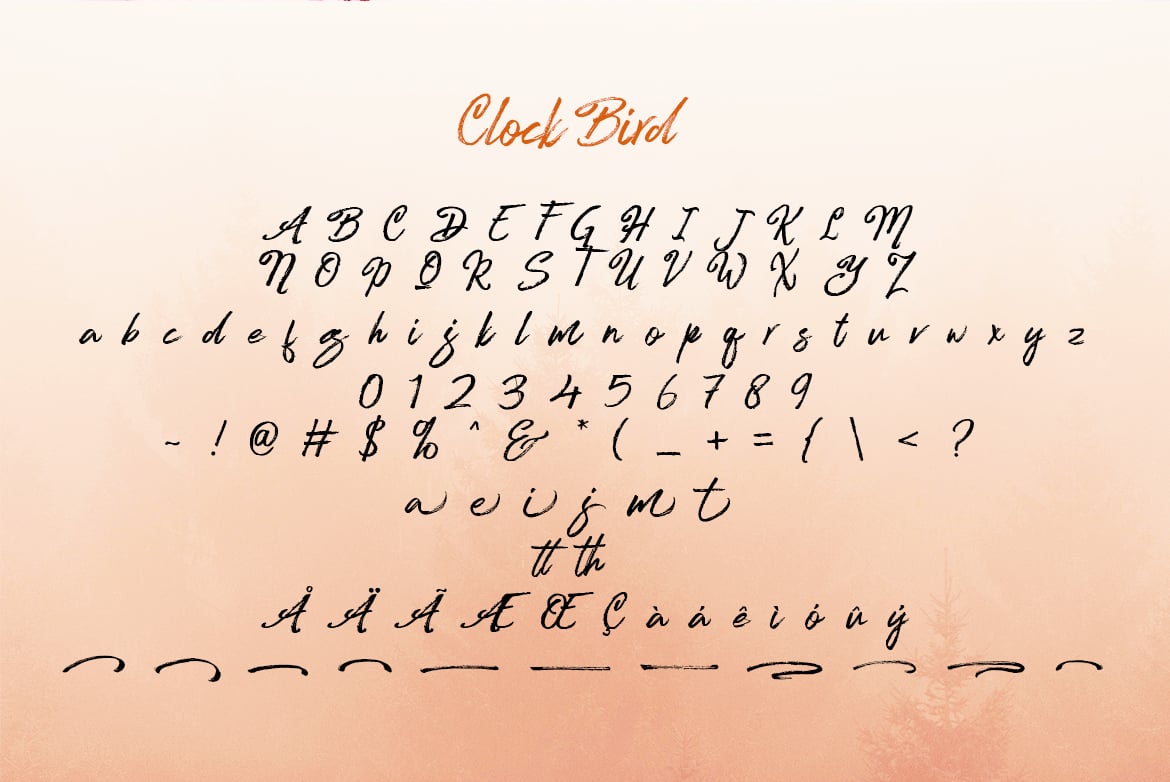 Clock Bird
A B C D E F G H I J K L M
N O P Q R S T U V W X Y Z
a b c d e f g h i j k l m n o p q r s t u v w x y z
0 1 2 3 4 5 6 7 8 9
~ ! @ # $ % ^ & * ( _ + = { \ < ?
a e i j m t
tt th
Å Ä Ã Æ Œ Ç à á ê ì ó û ý